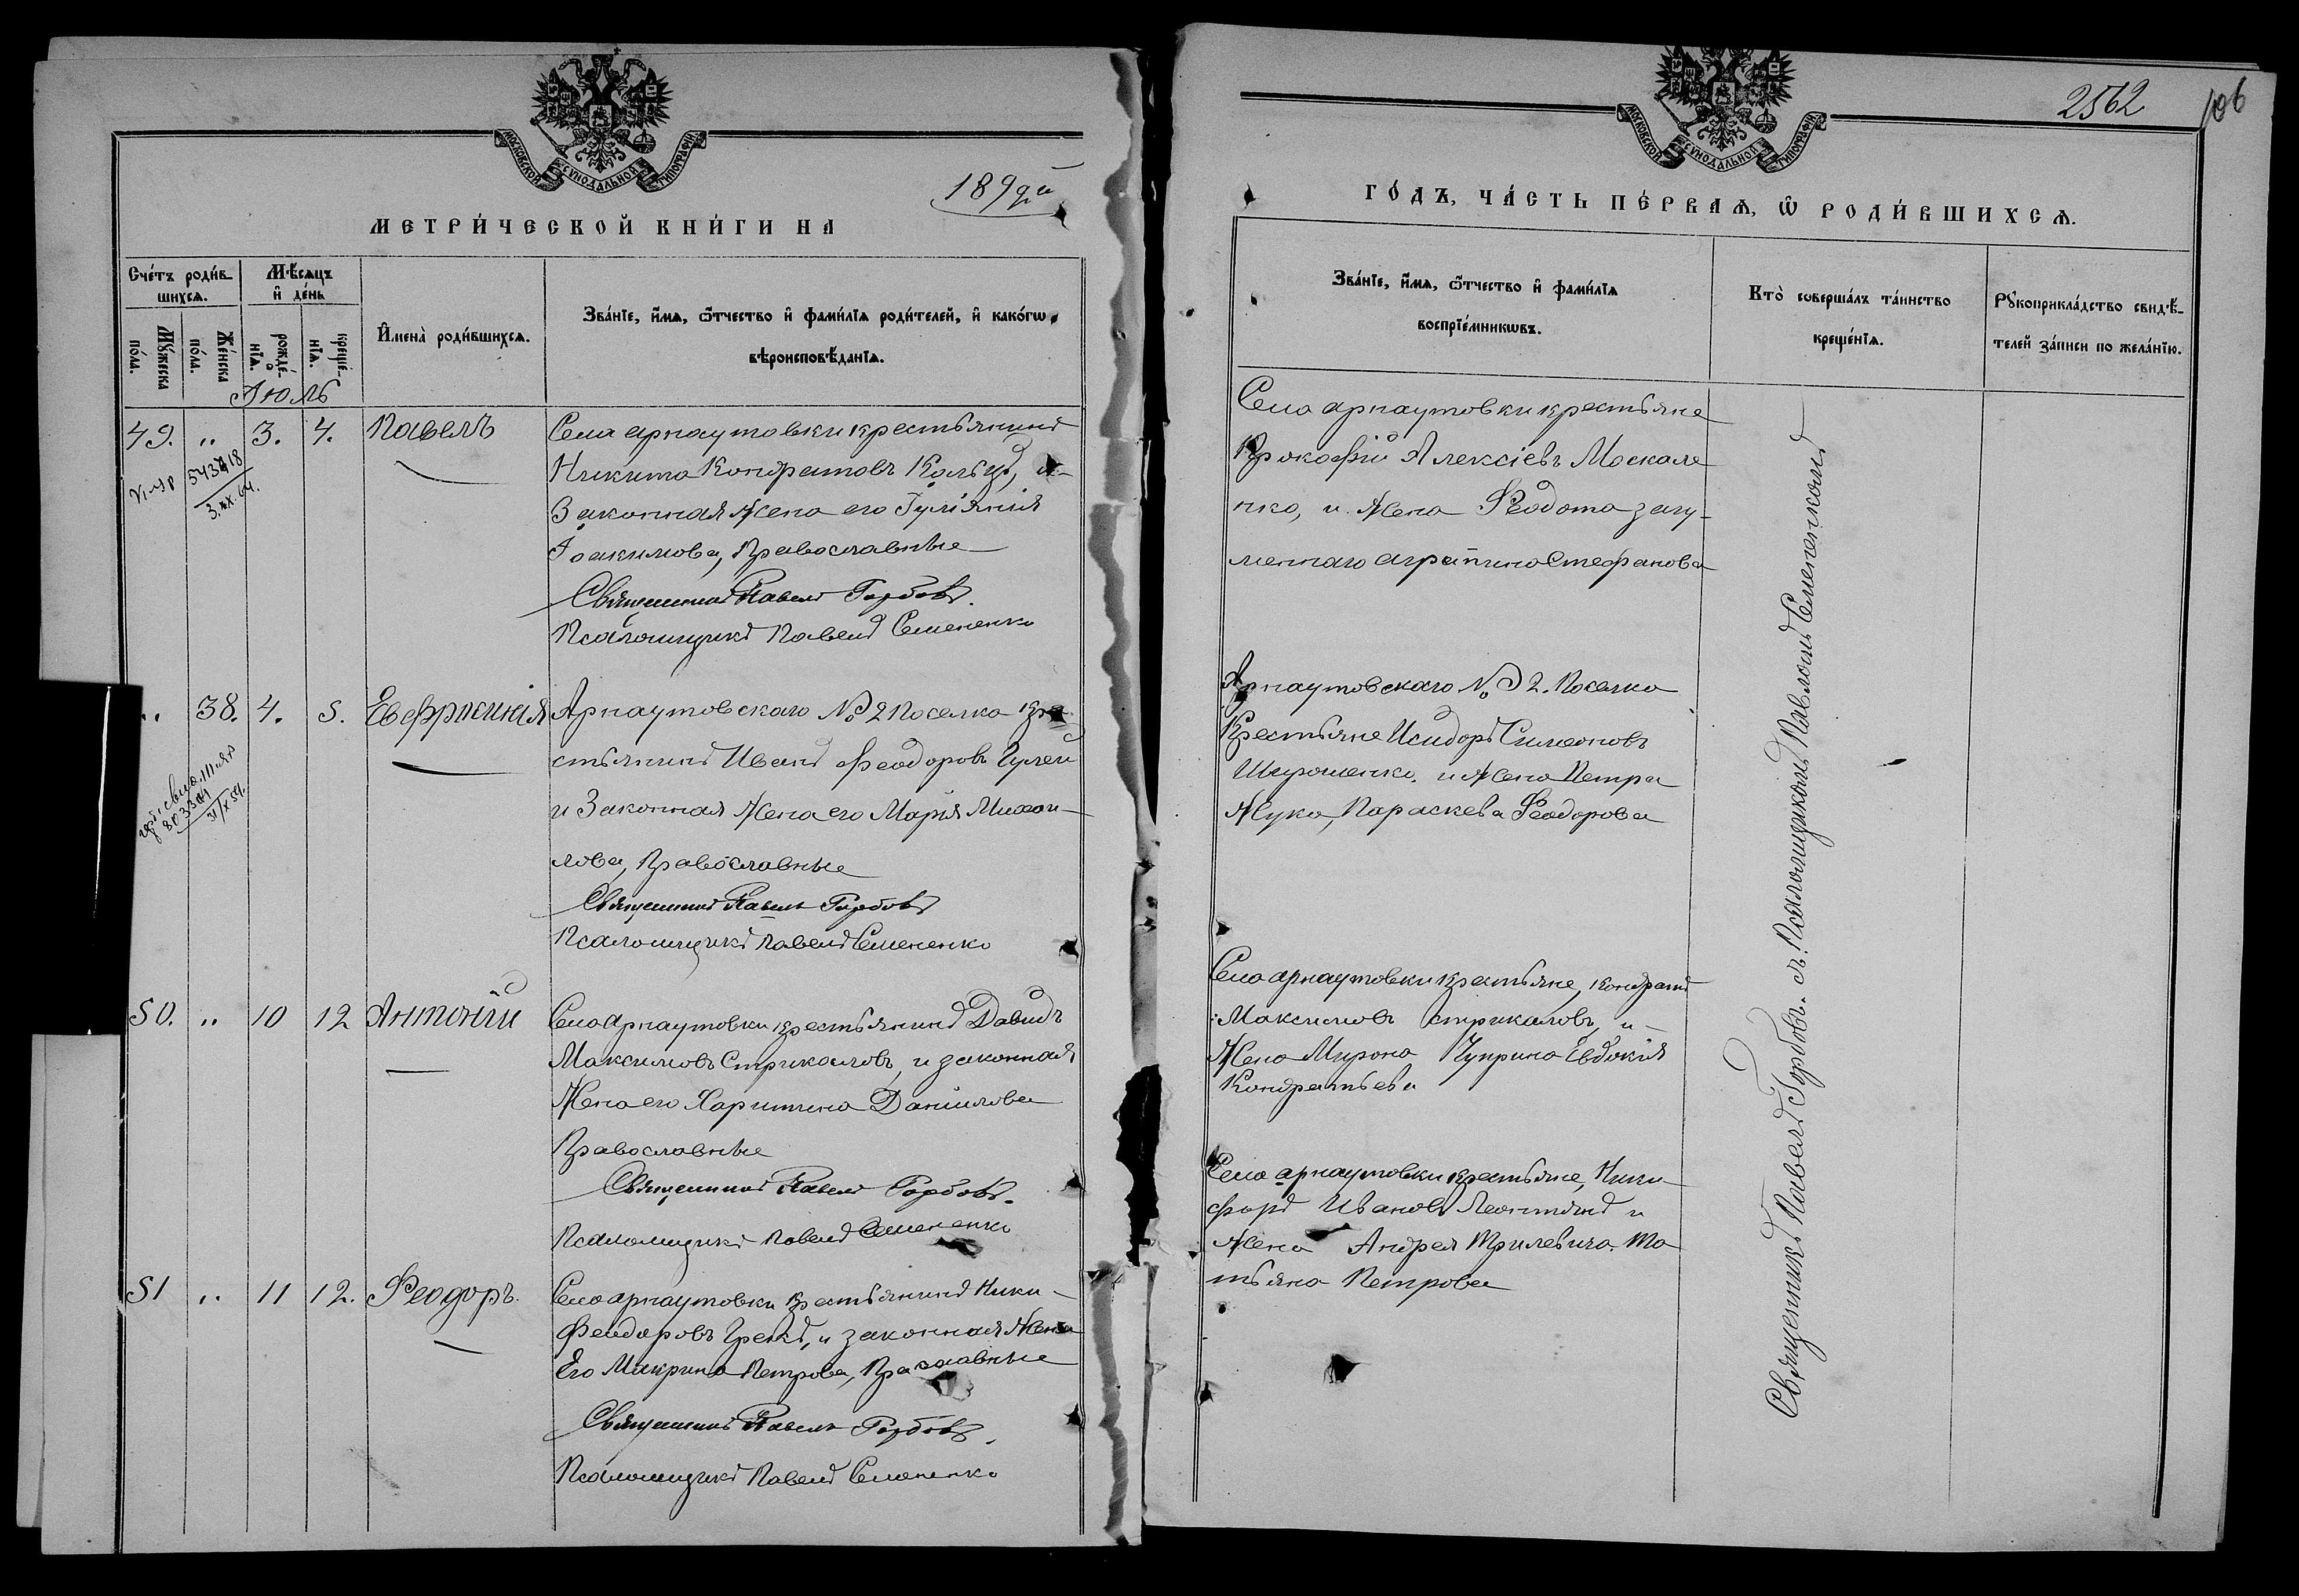 МОСКОВСКОЙ СѴНОДАЛЬНОЙ ТИПОГРАФІИ
189
МЕТРИ́ЧЕСКОЙ КНИ́ГИ НА
Сче́тъ роди́в-
шихсѧ.
Мѣ́сѧцъ
и҆ де́нь
Мꙋ́жеска по́ла.
Же́нска по́ла.
рожде́-
нїѧ.
креще́-
нїѧ.
И҆мена̀ роди́вшихсѧ.
Зва́нїе, и҆́мѧ, ѻ҆́тчество и҆ фами́лїѧ роди́телей, и҆ како́гѡ
вѣроисповѣ́данїѧ.
Іюль
49. „ 3. 4. Павелъ
Села арнаутовки крестьянинъ
Никита Кондратовъ Кольцъ, и
Законная жена его Іуліянія
Іоакимова, Православные
Священникъ Павелъ Горбовъ.
Псаломщикъ Павелъ Семененко
„ 38. 4. 5. Евфросинія
Арнаутовскаго № 2 Поселка кре-
стьянинъ Иванъ Феодоровъ Гулей
и Законная жена его Марія Михаи-
лова, Православные
Священникъ Павелъ Горбовъ
Псаломщикъ Павелъ Семененко
50. „ 10 12 Антоній
Села арнаутовки крестьянинъ Давидъ
Максимовъ Стрикаловъ, и законная
Жена его Харитина Даніилова
Православные
Священникъ Павелъ Горбовъ.
Псаломщикъ Павелъ Семененко
51 „ 11 12. Феодоръ.
Села арнаутовки крестьянинъ Ники-
Феодоровъ Грекъ, и законная жена
Его Макрина Петрова, Православные
Священникъ Павелъ Горбовъ,
Псаломщикъ Павелъ Семененко
МОСКОВСКОЙ СѴНОДАЛЬНОЙ ТИПОГРАФІИ
2562
106
ГО́ДЪ, ЧА́СТЬ ПЕ́РВАѦ, Ѡ҆ РОДИ́ВШИХСѦ.
Зва́нїе, и҆́мѧ, ѻ҆́тчество и҆ фами́лїѧ
воспрїе́мникѡвъ.
Кто̀ соверша́лъ та́инство
креще́нїѧ.
Рꙋкоприкла́дство свидѣ́-
телей за́писи по жела́нїю.
Села арнаутовки крестьяне
Прокофій Алексіевъ Москале
нко, и жена Феодота загу-
меннаго агрипина Стефанова
Арнаутовскаго № 2. Поселка
Крестьяне Исидоръ Симеоновъ
Мирошенко, и жена Петра
Жука, Параскева Феодорова
Села арнаутовки крестьяне, Кондратъ
Максимовъ стрикаловъ, и
Жена Мирона Чуприна Евдокія
Кондратьева
Села арнаутовки крестьяне, Ники-
форъ Ивановъ и
жена Андрея Та
тьяна Петрова
Священникъ Павелъ Горбовъ. съ Псаломщикомъ Павломъ Семененкомъ